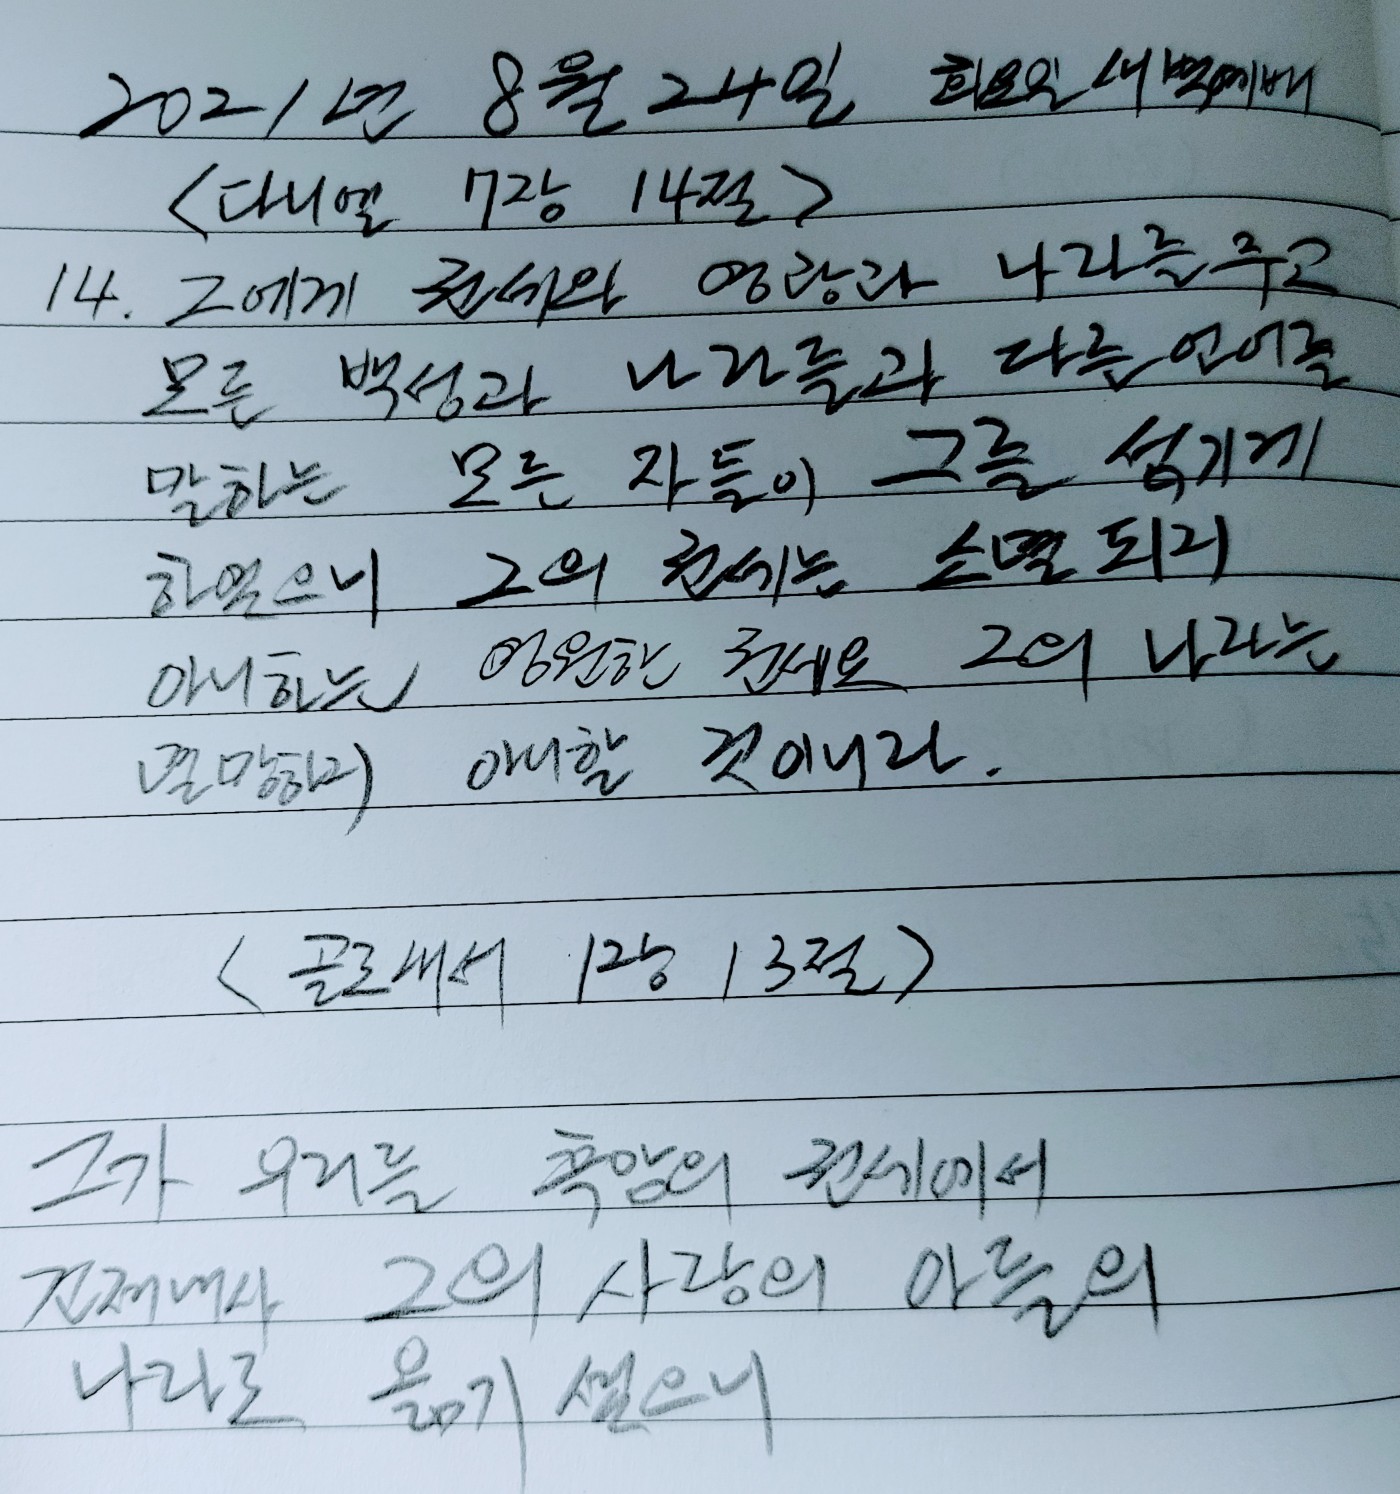 2021년 8월 24일 화요일 새벽예배
<다니엘 7장 14절>
14. 그에게 권세와 영광과 나라를 주고
모든 백성과 나라들과 다른 언어를
말하는 모든 자들이 그를 섬기게
하였으니 그의 권세는 소멸되리
아니하는 영원한 권세요 그의 나라는
멸망하리 아니할 것이니라.
<골로새서 1장 13절>
그가 우리를 흑암의 권세에서
건져내사 그의 사랑의 아들의
나라로 옮기셨으니